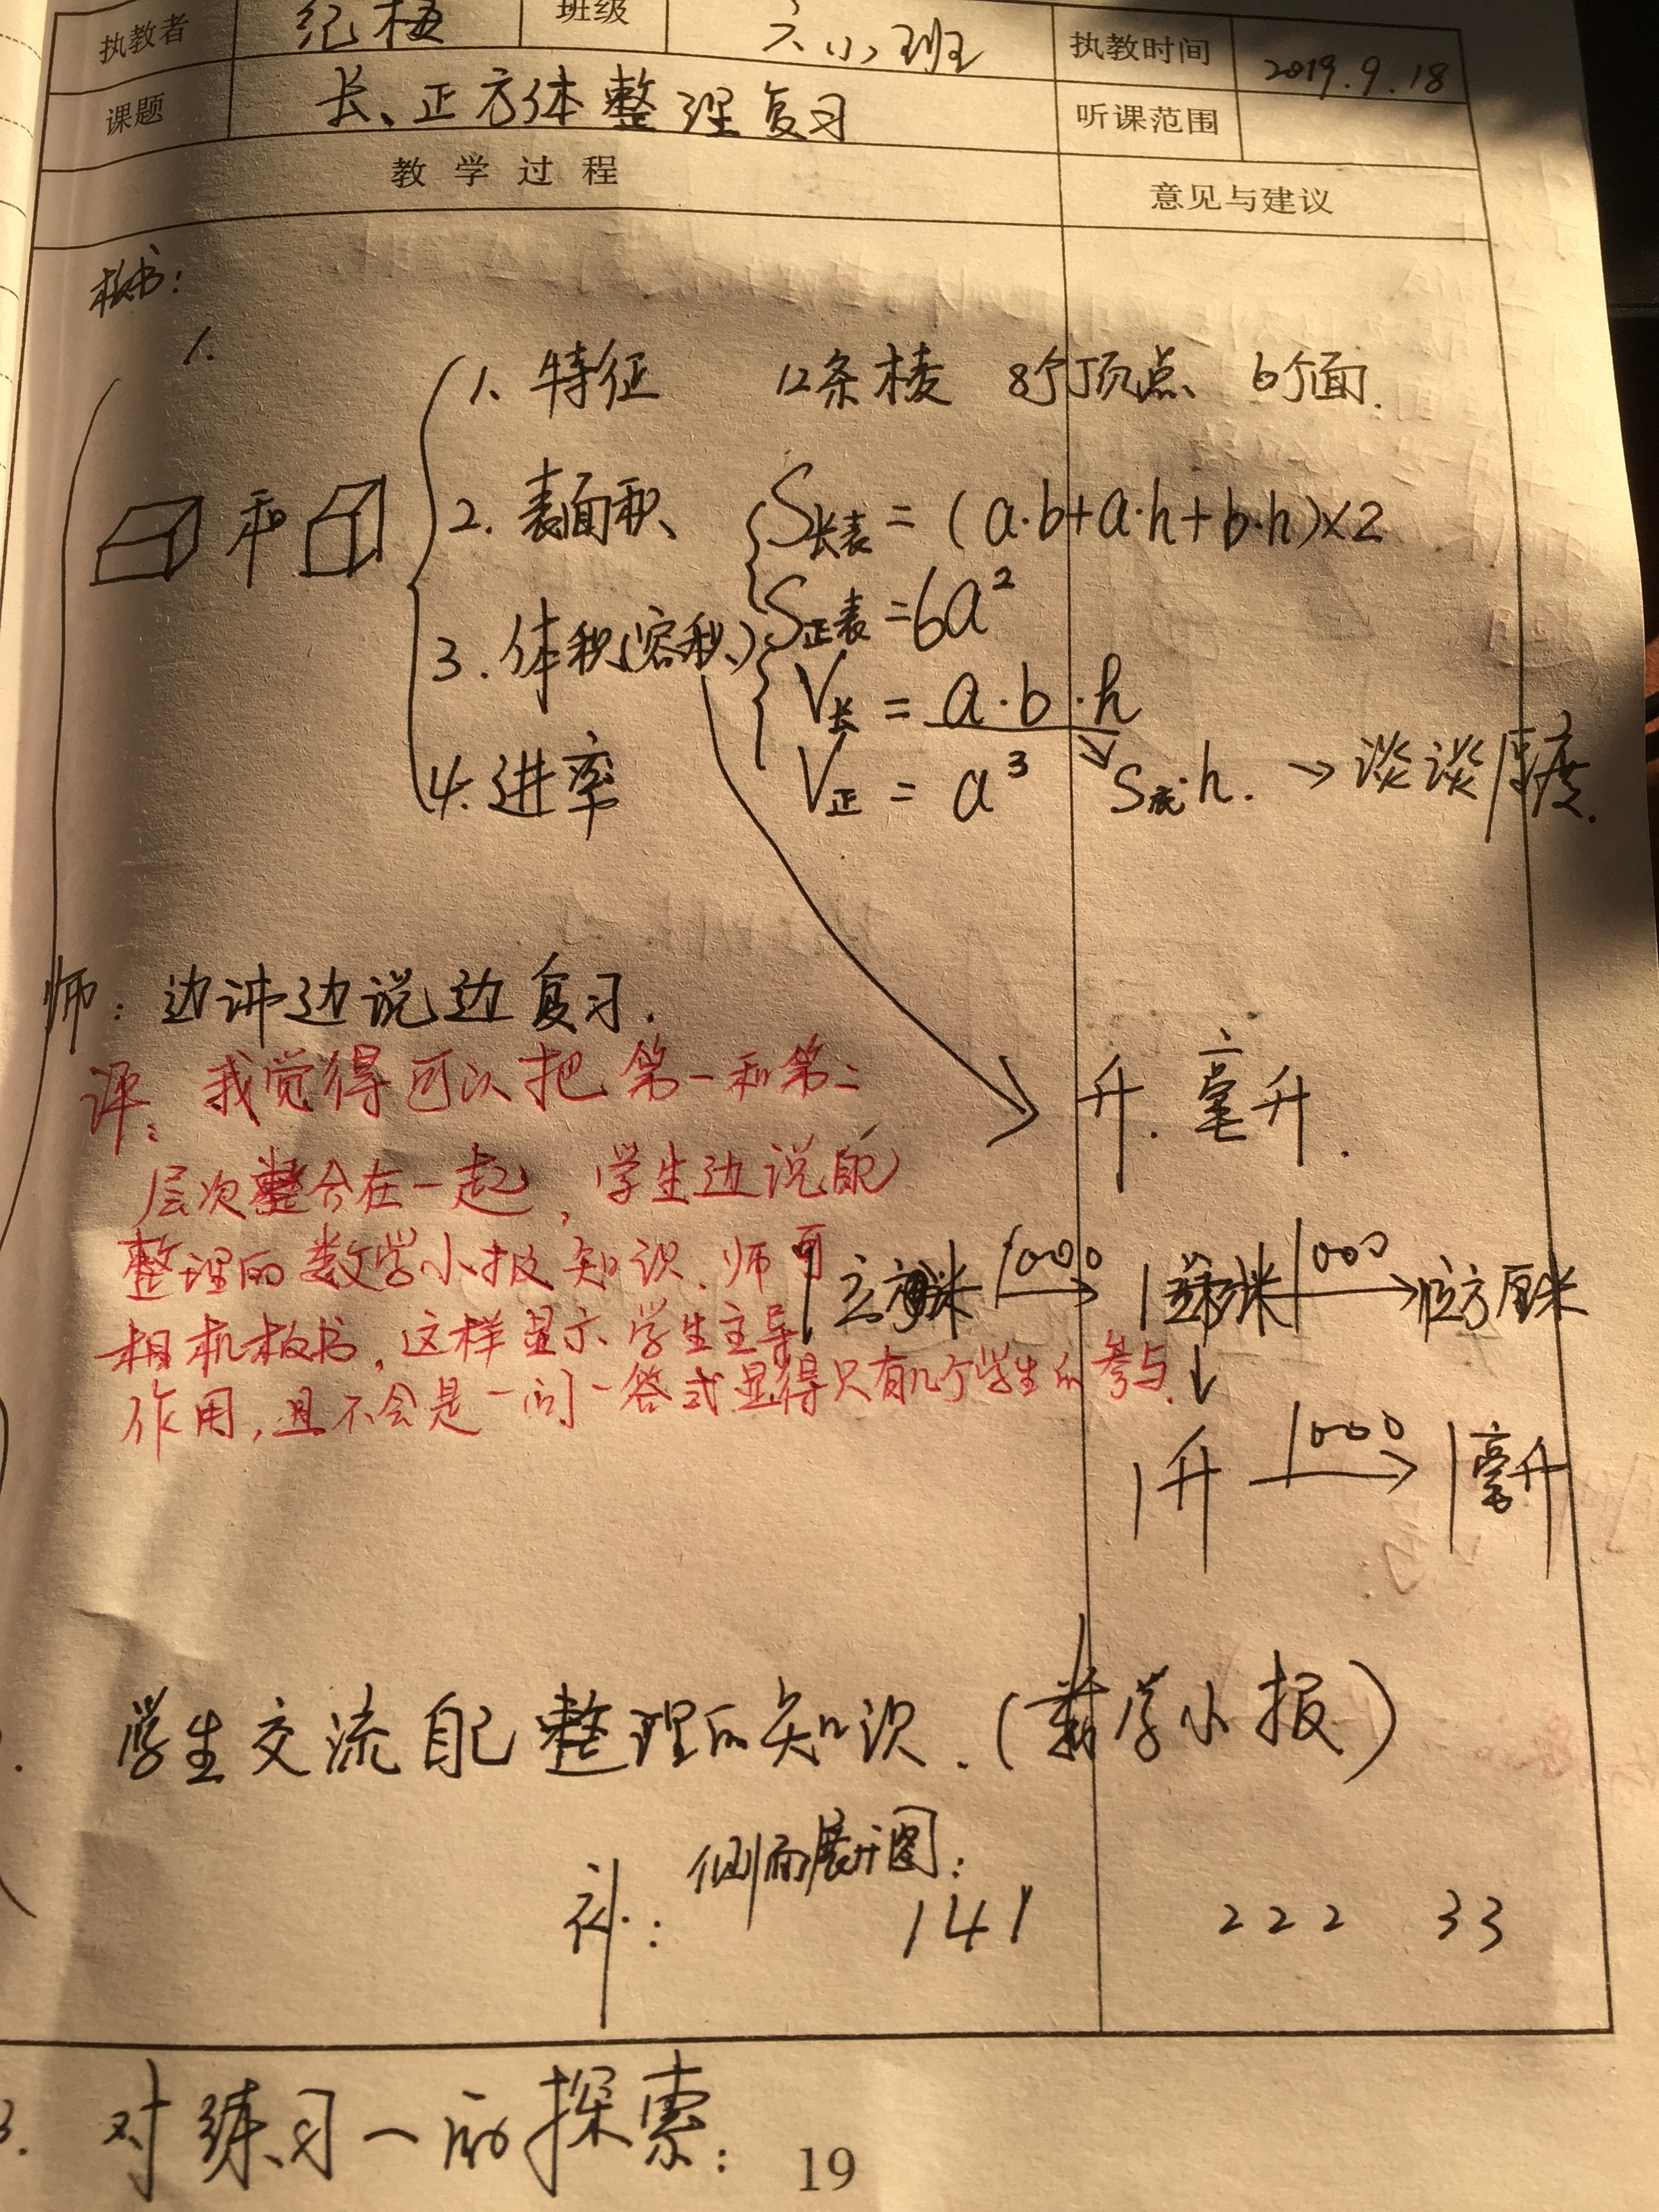 执教者 纪梅 班级 六(1)班 执教时间 2019.9.18
课题 长、正方体整理复习 听课范围
教学过程 意见与建议
板书:
1.
1. 特征 12条棱 8个顶点 6个面.
和 2. 表面积 S长表 = (a·b+a·h+b·h)×2
S正表 = 6a²
3. 体积(容积) V长 = a·b·h
4. 进率 V正 = a³ S底·h. → 谈谈厚度.
师: 边讲边说边复习.
评: 我觉得可以把第一和第二
层次整合在一起, 学生边说自己
整理的数学小报知识. 师可
相机板书, 这样显示学生主导
作用, 且不会是一问一答式显得只有几个学生的参与.
升. 毫升.
1立方米 1000→ 1立方分米 1000→ 1立方厘米
↓
1升 1000→ 1毫升
学生交流自己整理的知识.(数学小报)
补: 侧面展开图:
141 222 33
3. 对练习一的探索:
19